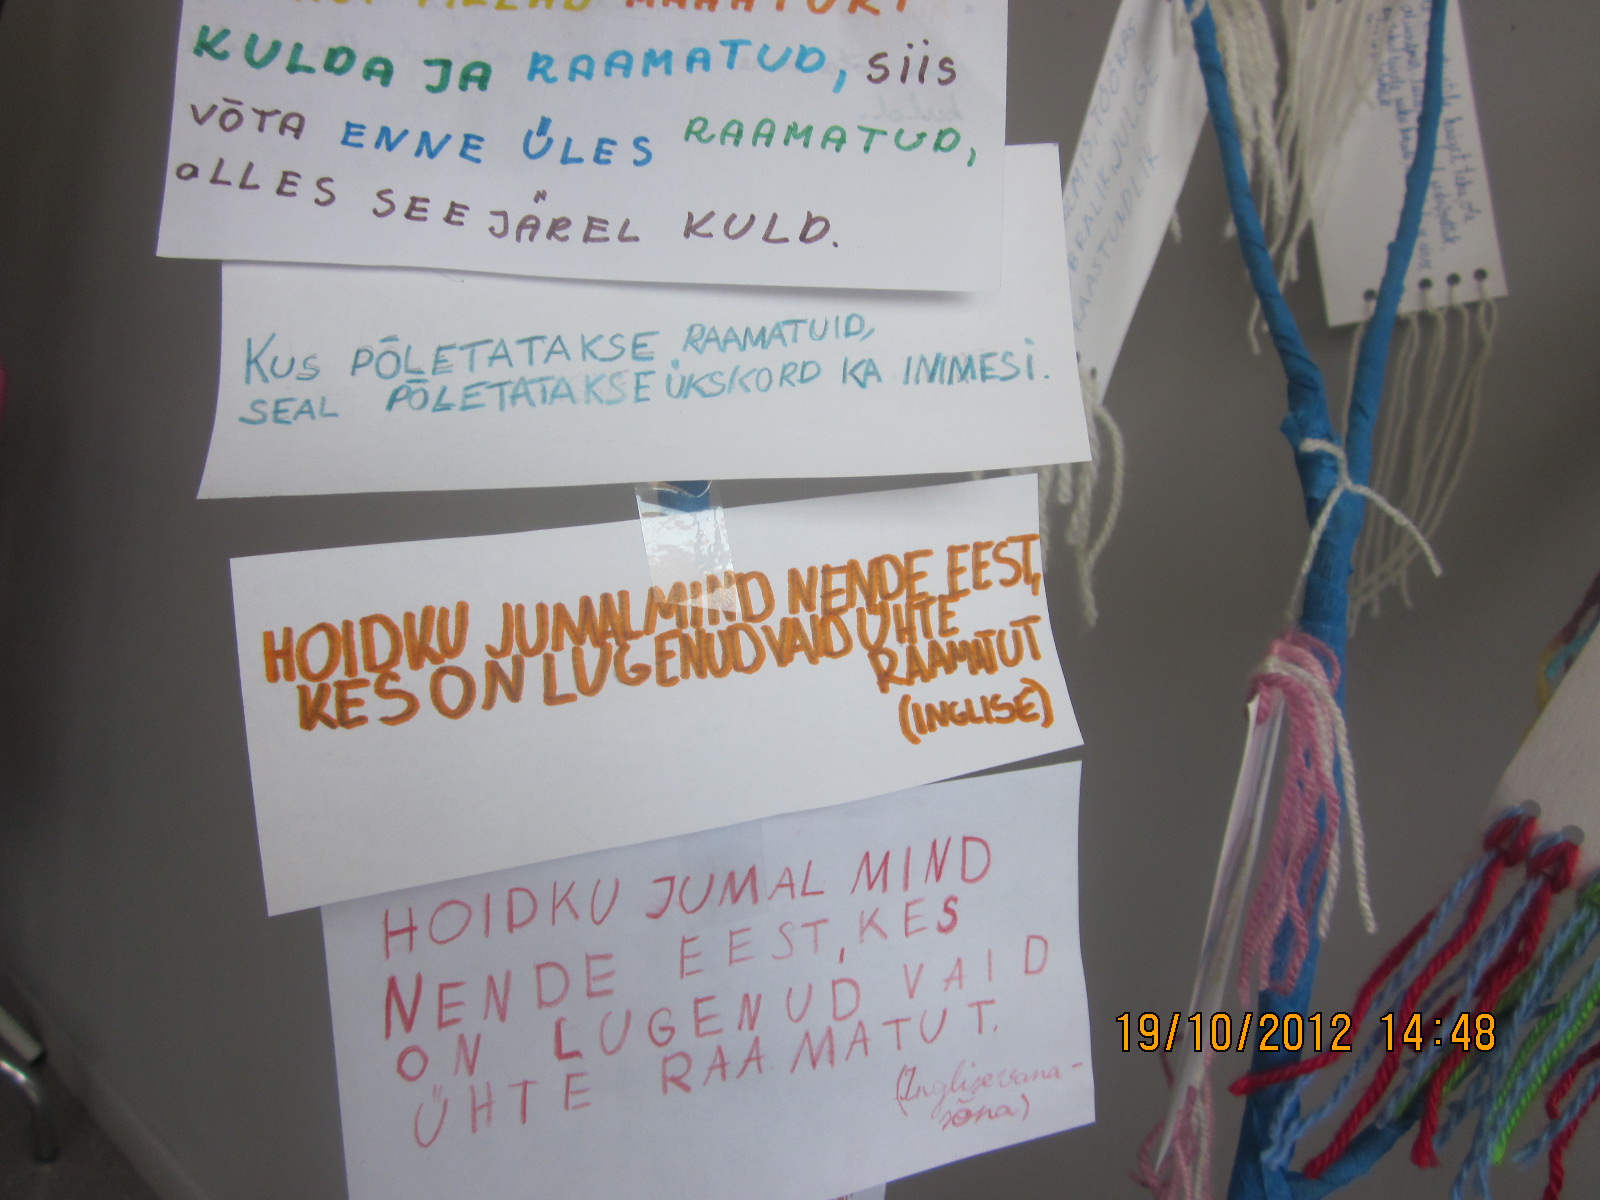 KULDA JA RAAMATUD, SIIS
VÕTA ENNE ÜLES RAAMATUD,
ALLES SEEJÄREL KULD.
KUS PÕLETATAKSE RAAMATUID,
SEAL PÕLETATAKSE ÜKSKORD KA INIMESI.
HOIDKU JUMAL MIND NENDE EEST,
KES ON LUGENUD VAID ÜHTE
RAAMATUT
(INGLISE)
HOIDKU JUMAL MIND
NENDE EEST, KES
ON LUGENUD VAID
ÜHTE RAAMATUT.
(Inglise vana-
sõna)
19/10/2012 14:48